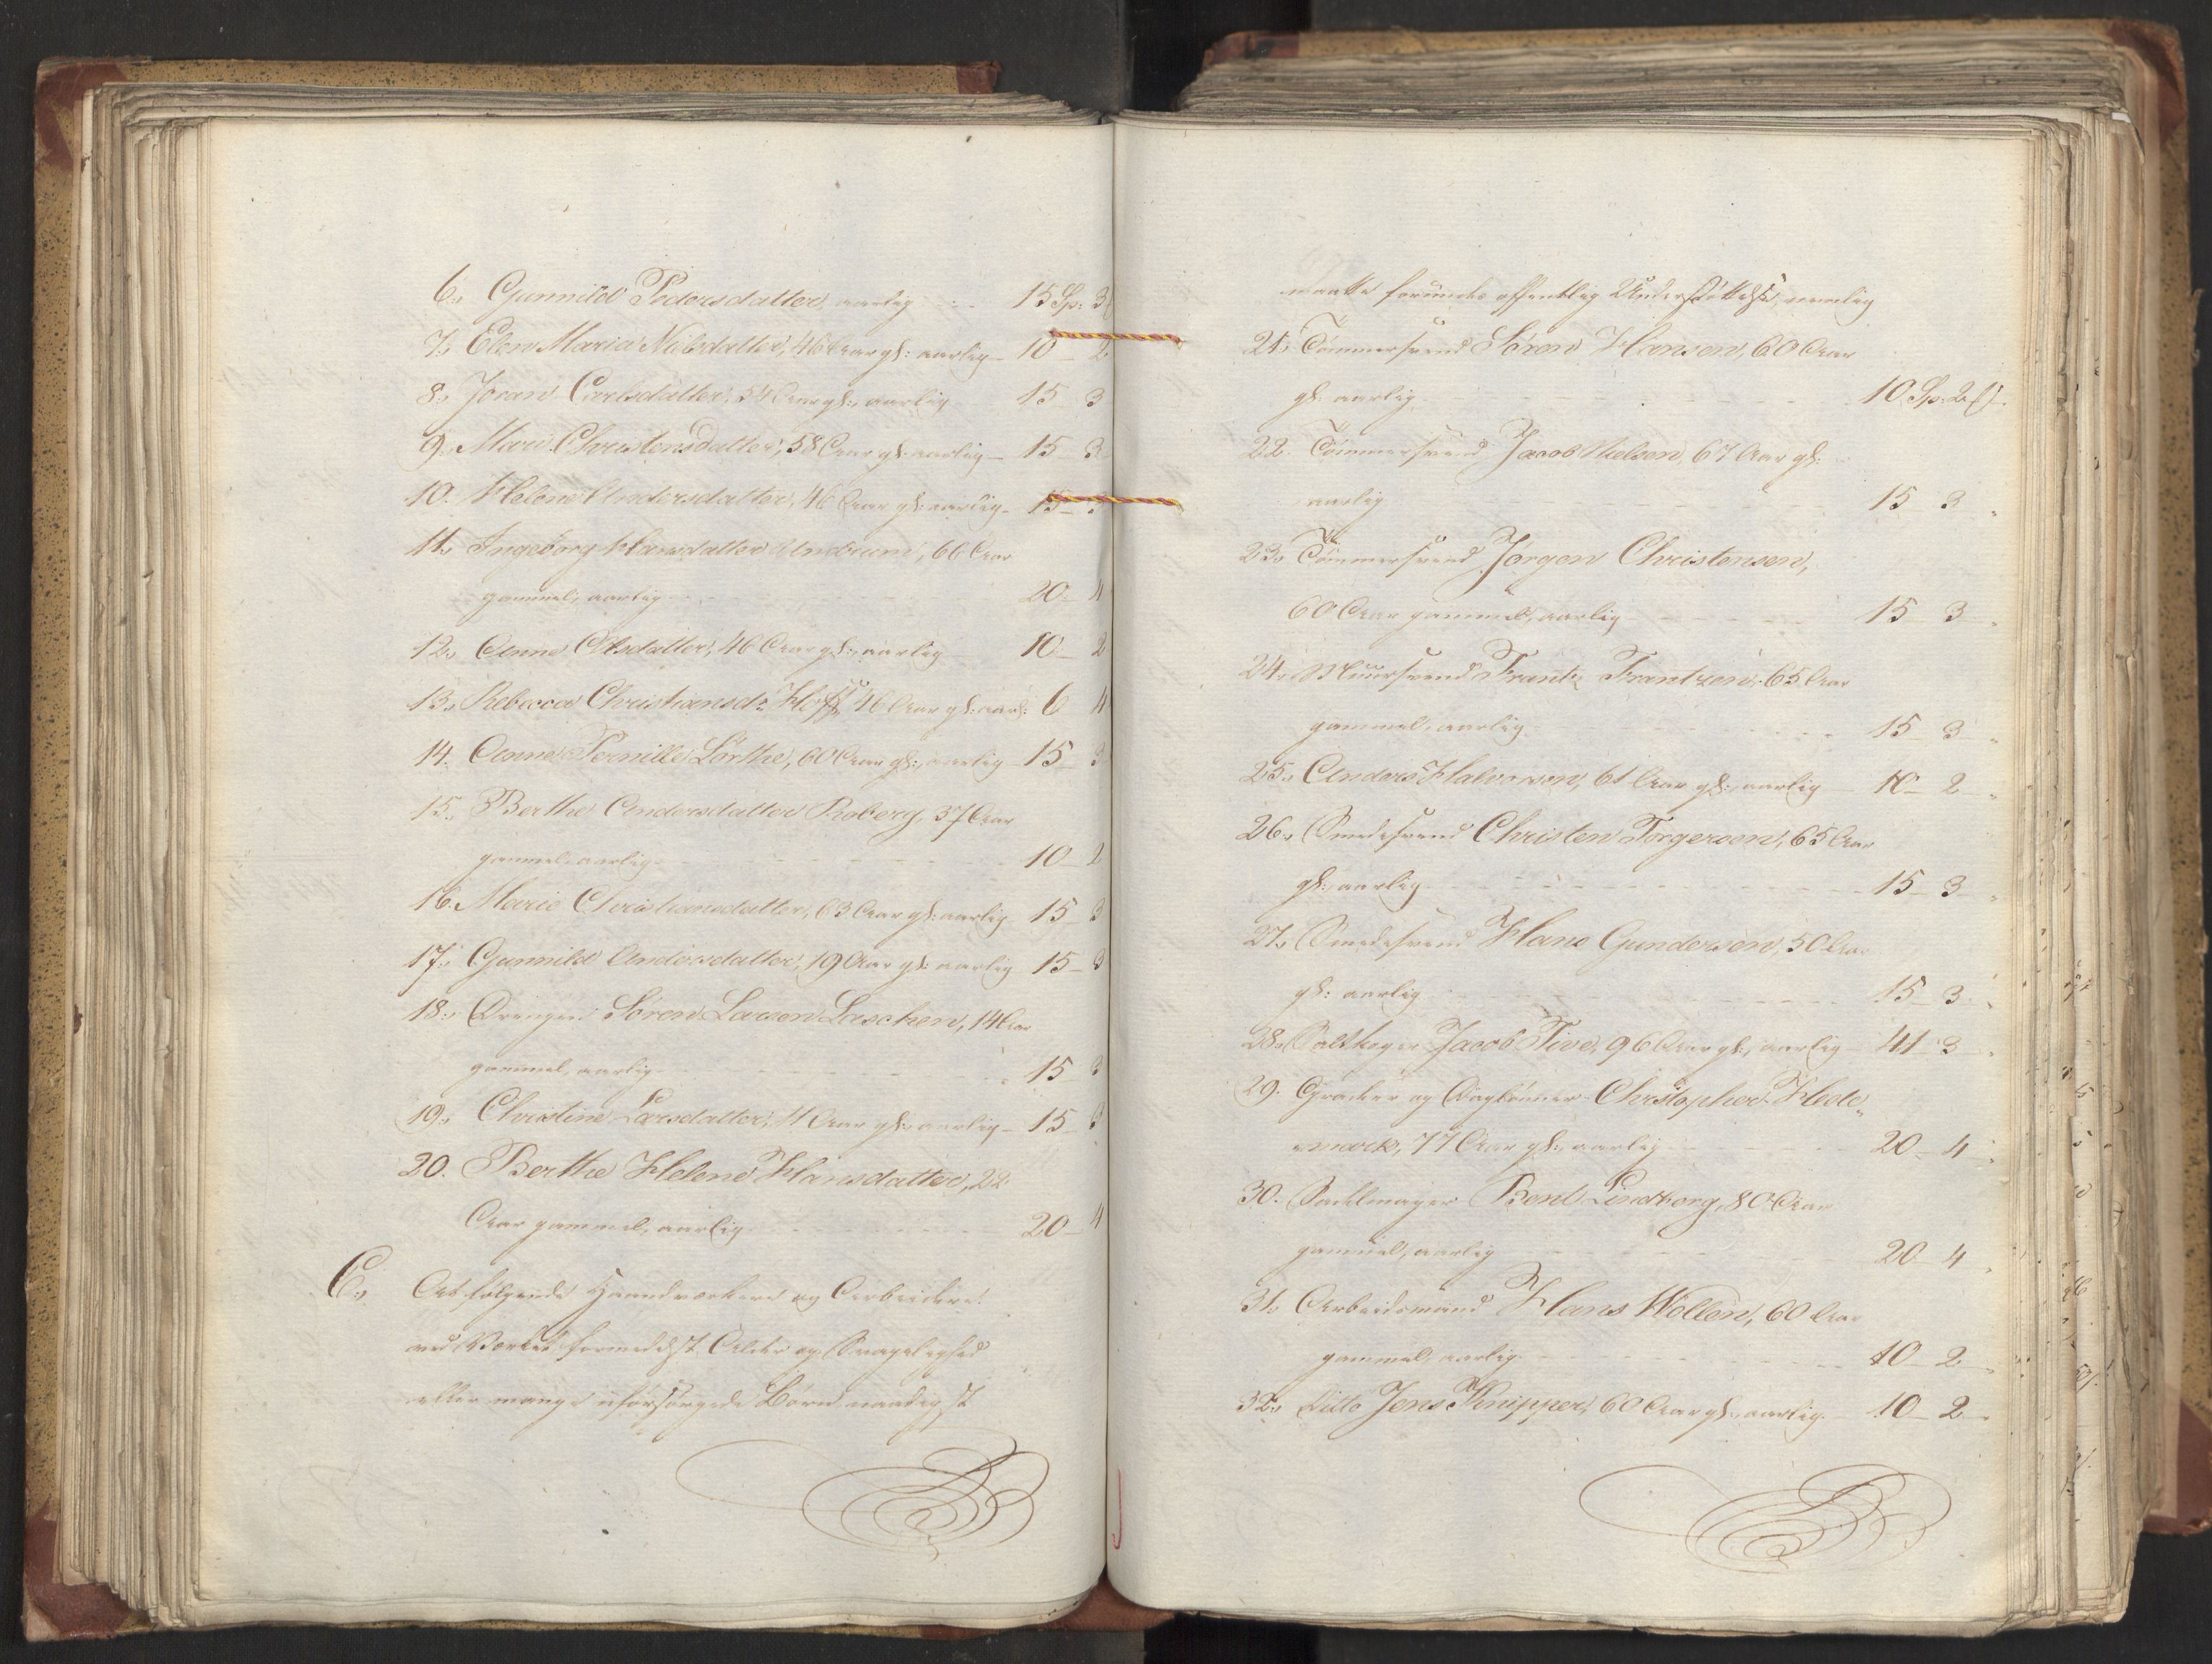 6, Gunnild Pedersdatter, aarlig 15 Sp: 3
7, Elen Maria Nielsdatter, 46 Aar gl: aarlig 10 2
8, Joran Carlsdatter, 54 Aar gl:, aarlig 15 3
9, Mari Christensdatter, 58 Aar gl: aarlig 15 3
10. Helene Andersdatter, 46 Aar gl: aarlig 15 3
11, Ingeborg Hansdatter Undrum, 66 Aar
gammel, aarlig 20 4
12, Anne Olsdatter, 46 Aar gl:, aarlig 10 2
13, Rebecca Christiansdr. Hoff, 46 Aar gl: aarl: 6 4
14. Anne Pernille Lørthe, 60 Aar gl:, aarlig 15 3
15, Berthe Andersdatter Roberg, 37 Aar
gammel aarlig 10 2
16. Marie Christiansdatter, 63 Aar gl: aarlig 15 3
17, Gunnild Andersdatter, 19 Aar gl: aarlig 15 3
18, Drengen Søren Larsen Laschen, 14 Aar
gammel, aarlig 15 3
19, Christine Larsdatter, 11 Aar gl: aarlig 15 3
20. Berthe Helene Hansdatter, 22
Aar gammel, aarlig 20 4
C, At følgende Haandværkere og Arbeidere
ved Værket formedelst Alder og Svagelighed
eller mange uforsørgede Børn naadigst
maatte forundes offentlig Understøttelse, nemlig
21, Tømmersvend Søren Hansen, 60 Aar
gl: aarlig 10 Sp: 2
22. Tømmersvend Jacob Nielsen, 67 Aar gl:
aarlig 15 3
23, Tømmersvend Jørgen Christensen,
60 Aar gammel, aarlig 15 3
24, Muursvend Frantz Frantzen, 65 Aar
gammel, aarlig 15 3
25, Anders Halvorsen, 61 Aar gl:, aarlig 10 2
26, Smedesvend Christen Torgersen, 65 Aar
gl:, aarlig 15 3
27, Smedesvend Hans Gundersen, 50 Aar
gl: aarlig 15 3
28, Saltkoger Jacob Five, 96 Aar gl:, aarlig 41 3
29. Graver og Daglønner Christopher Hede-
mark, 77 Aar gl:, aarlig 20 4
30. Sadelmager Bent Lindborg, 80 Aar
gammel, aarlig 20 4
31, Arbeidsmand Hans Wollen, 60 Aar
gammel, aarlig 10 2
32, Ditto Jens Knipper, 60 Aar gl: aarlig 10 2